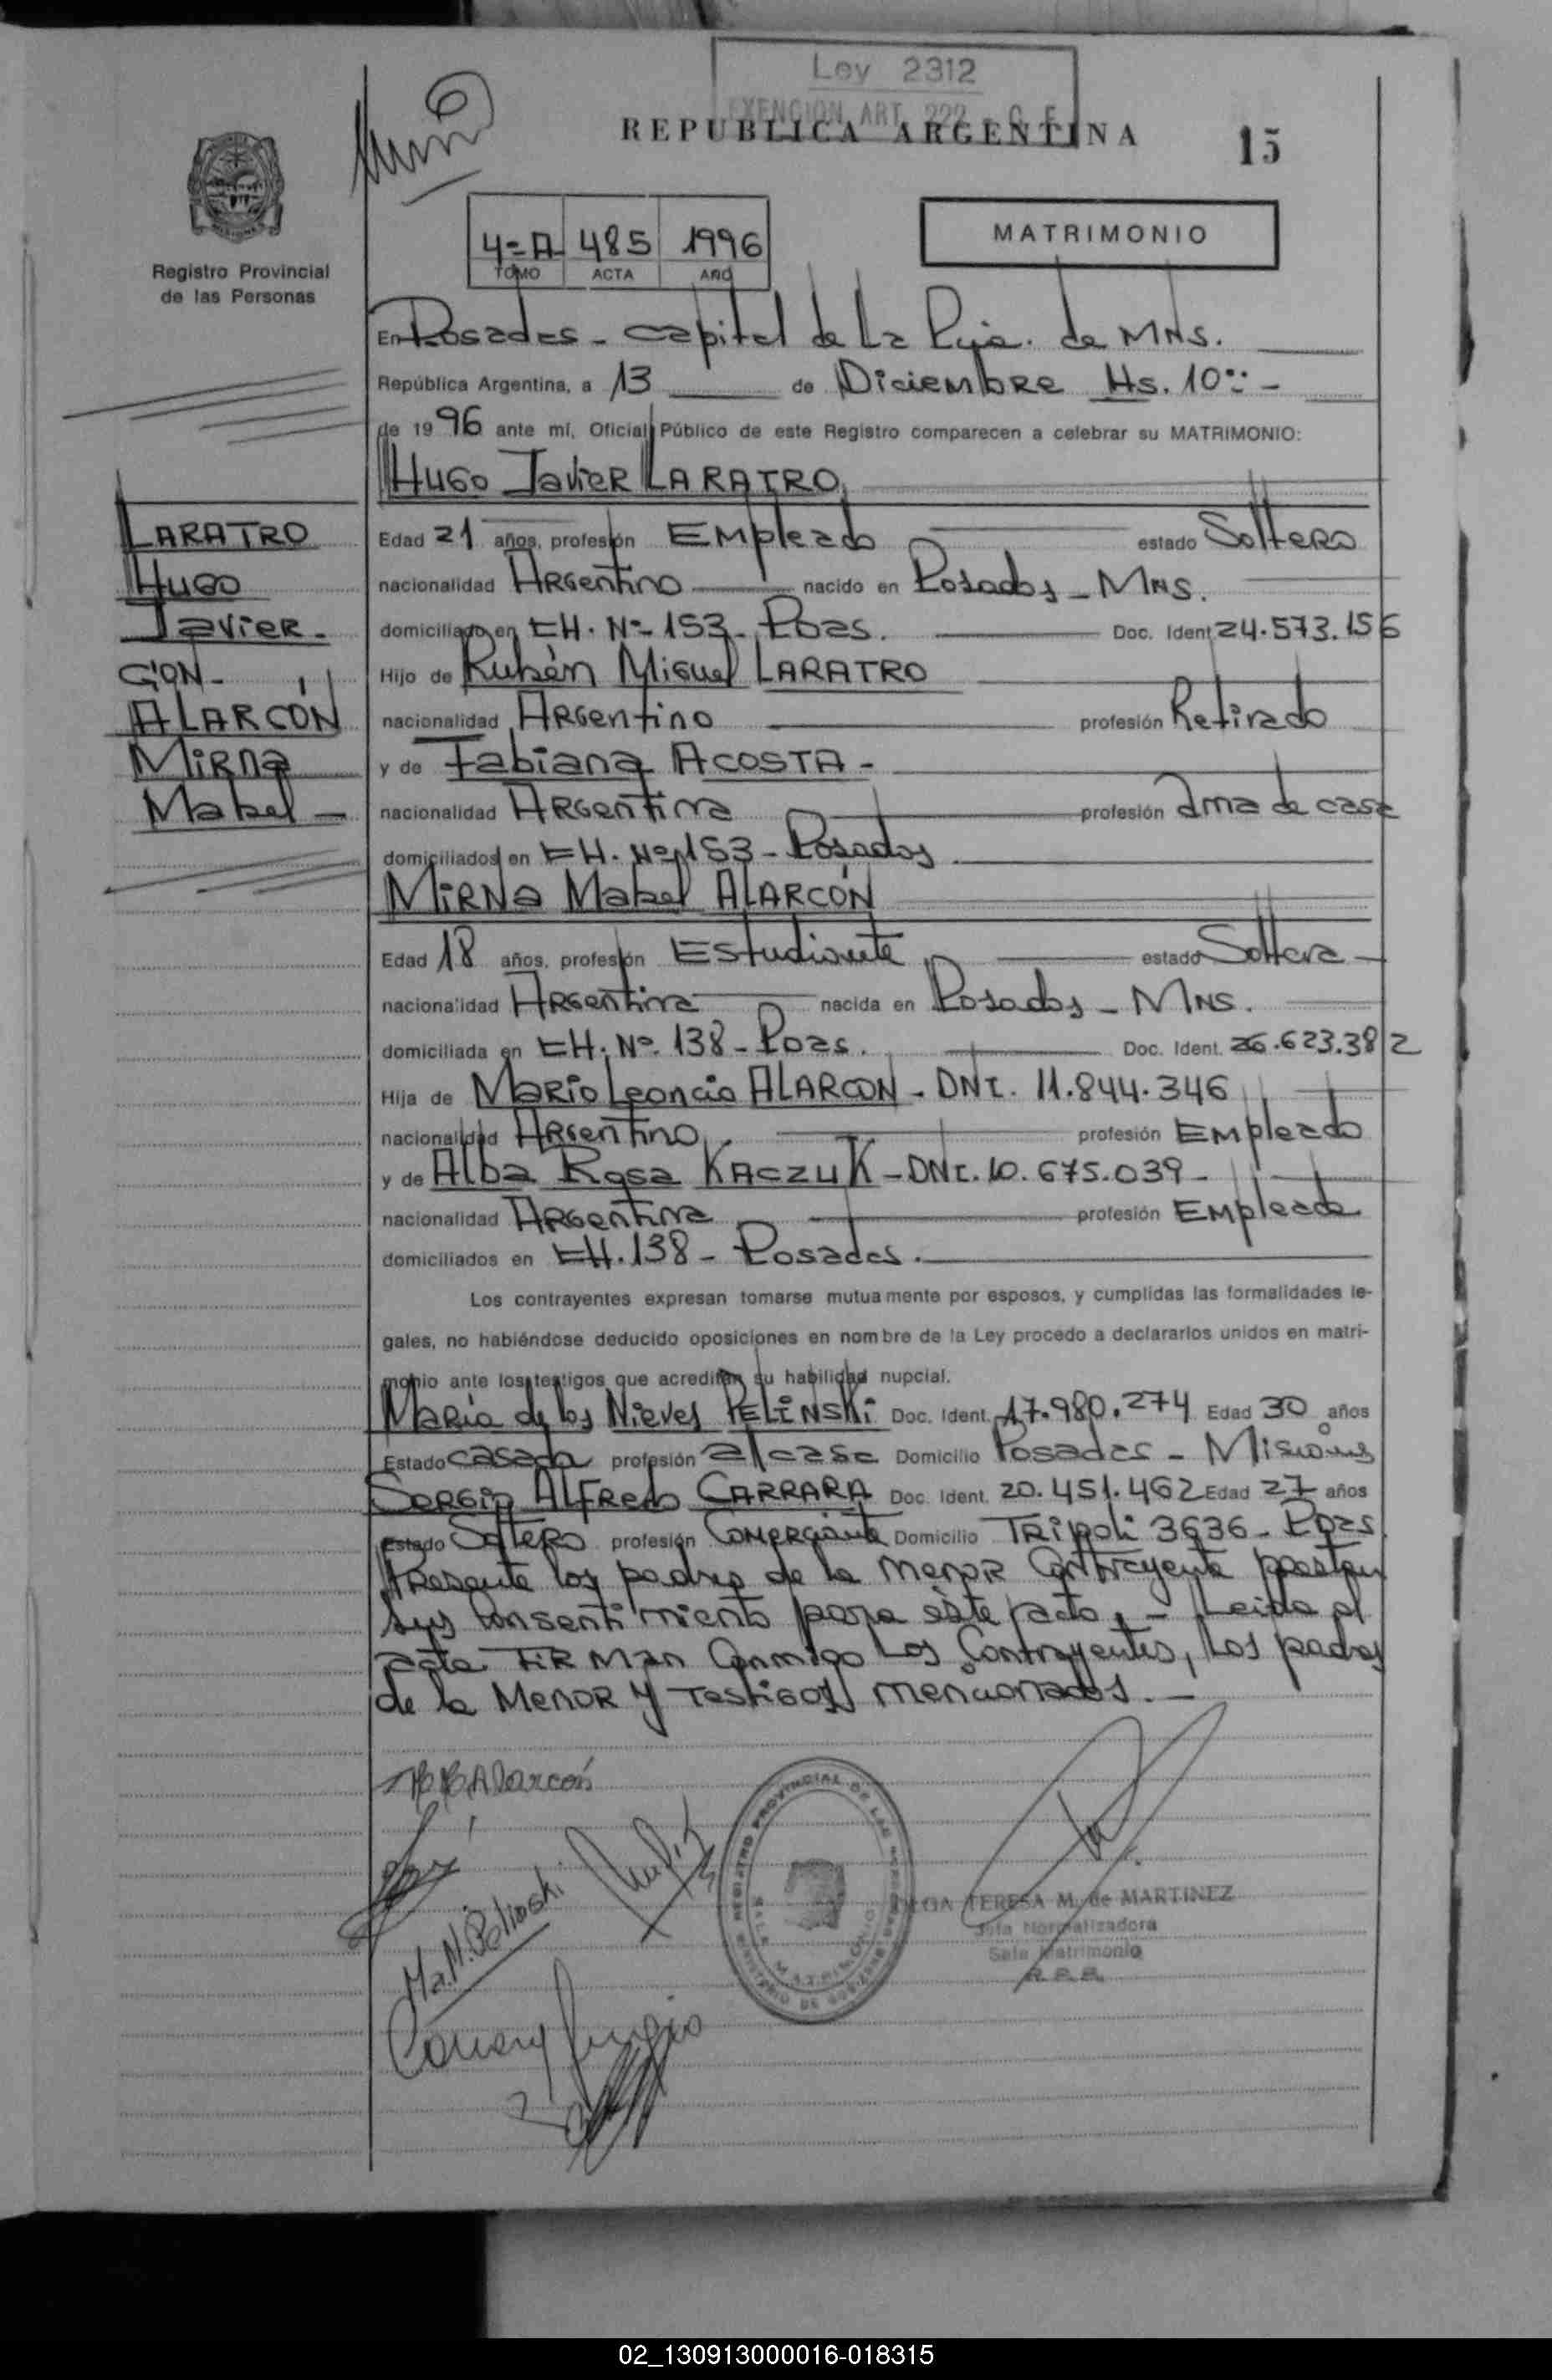 Ley 2312
EXENCION ART. 222 - C. F.
REPUBLICA ARGENTINA
15
Registro Provincial
de las Personas
4=A 485 1996
TOMO ACTA AÑO
MATRIMONIO
En Posadas - capital de La Pcia. de MNS.
República Argentina, a 13 de Diciembre Hs. 10:: -
de 1996 ante mí, Oficial Público de este Registro comparecen a celebrar su MATRIMONIO:
Hugo Javier LARATRO
LARATRO
Hugo
Javier -
CON -
ALARCÓN
Mirna
Mabel -
Edad 21 años, profesión Empleado estado Soltero
nacionalidad Argentino nacido en Posadas - MNS.
domiciliado en CH. Nº 153 - Pdas. Doc. Ident 24.573.156
Hijo de Rubén Miguel LARATRO
nacionalidad Argentino profesión Retirado
y de Fabiana ACOSTA -
nacionalidad Argentina profesión ama de casa
domiciliados en CH. Nº 153 - Posadas
Mirna Mabel ALARCÓN
Edad 18 años, profesión Estudiante estado Soltera
nacionalidad Argentina nacida en Posadas - MNS.
domiciliada en CH. Nº 138 - Pdas. Doc. Ident. 26.623.382
Hija de Mario Leoncio ALARCON - DNI. 11.844.346
nacionalidad Argentino profesión Empleado
y de Alba Rosa KACZUK - DNI. 10.675.039 -
nacionalidad Argentina profesión Empleada
domiciliados en CH. 138 - Posadas.
Los contrayentes expresan tomarse mutuamente por esposos, y cumplidas las formalidades le-
gales, no habiéndose deducido oposiciones en nombre de la Ley procedo a declararlos unidos en matri-
monio ante los testigos que acreditan su habilidad nupcial.
María de los Nieves PELINSKi Doc. Ident. 17.980.274 Edad 30 años
Estado casada profesión a/casa Domicilio Posadas - Misiones
Sergio Alfredo CARRARA Doc. Ident. 20.451.462 Edad 27 años
Estado Soltero profesión Comerciante Domicilio Tripoli 3636 - Pdas
Presente los padres de la menor Contrayente prestan
sus consentimiento para éste acto. - Leida el
acta FIRMAN Conmigo Los Contrayentes, Los padres
de la Menor y Testigos mencionados. -
M. M. Alarcón
Ma. N. Pelinski
Carrara Sergio
REGISTRO PROVINCIAL DE LAS PERSONAS
SALA MATRIMONIO
MINISTERIO DE GOBIERNO
OLGA TERESA M. de MARTINEZ
Jefa Normalizadora
Sala Matrimonio
R. P. P.
02_130913000016-018315